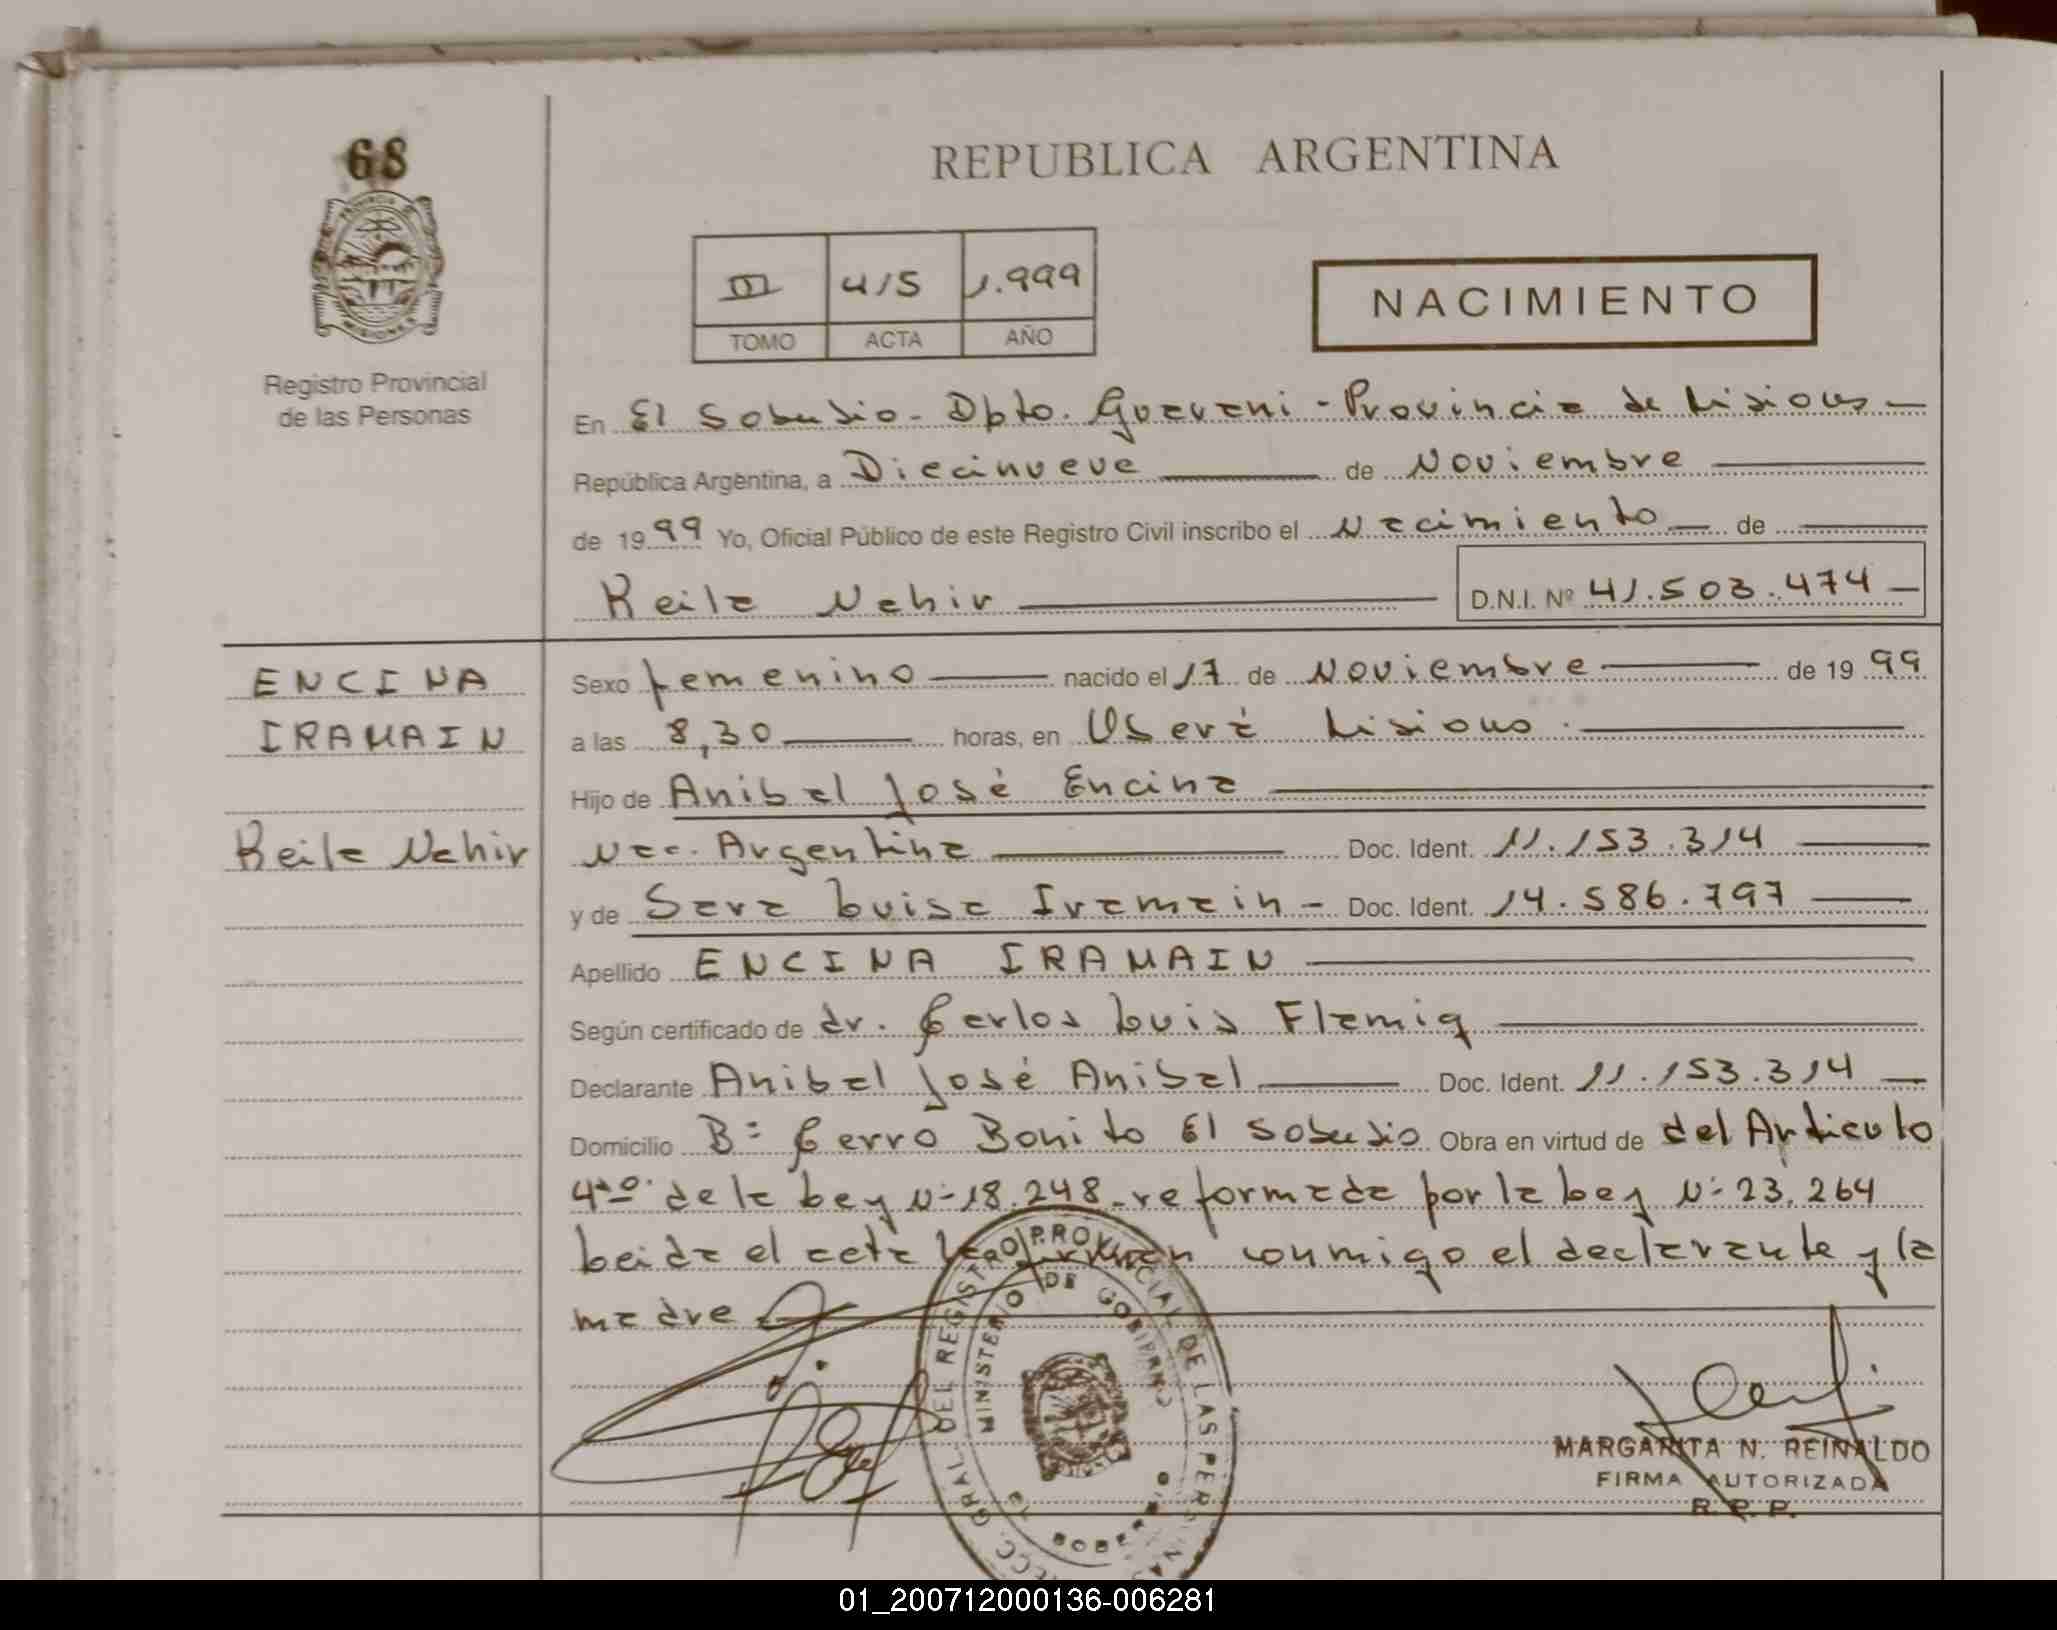 68
PROVINCIA DE
MISIONES
Registro Provincial
de las Personas
REPUBLICA ARGENTINA
III 415 1.999
TOMO ACTA AÑO
NACIMIENTO
En El Soberbio - Dpto. Guarani - Provincia de Misiones -
República Argentina, a Diecinueve de Noviembre
de 1999 Yo, Oficial Público de este Registro Civil inscribo el Nacimiento de
Keila Nahir D.N.I. Nº 41.503.474
ENCINA
IRAMAIN
Keila Nahir
Sexo femenino nacido el 17 de Noviembre de 19 99
a las 8,30 horas, en Oberá Misiones
Hijo de Anibal José Encina
Nac. Argentina Doc. Ident. 11.153.314
y de Sara Luisa Iramain - Doc. Ident. 14.586.797
Apellido ENCINA IRAMAIN
Según certificado de dr. Carlos Luis Flemiq
Declarante Anibal José Anibal Doc. Ident. 11.153.314
Domicilio B: Cerro Bonito El Soberbio Obra en virtud de del Articulo
4to. de la Ley N: 18.248 - reformada por la Ley N: 23.264
Leida el acta la firman conmigo el declarante y la
madre
DIRECC. GRAL. DEL REGISTRO PROVINCIAL DE LAS PERSONAS
MINISTERIO DE GOBIERNO
MARGARITA N. REINALDO
FIRMA AUTORIZADA
R. P. P.
01_200712000136-006281